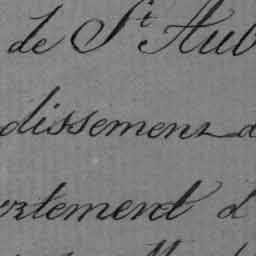 de St Aub
dissement d
artement d